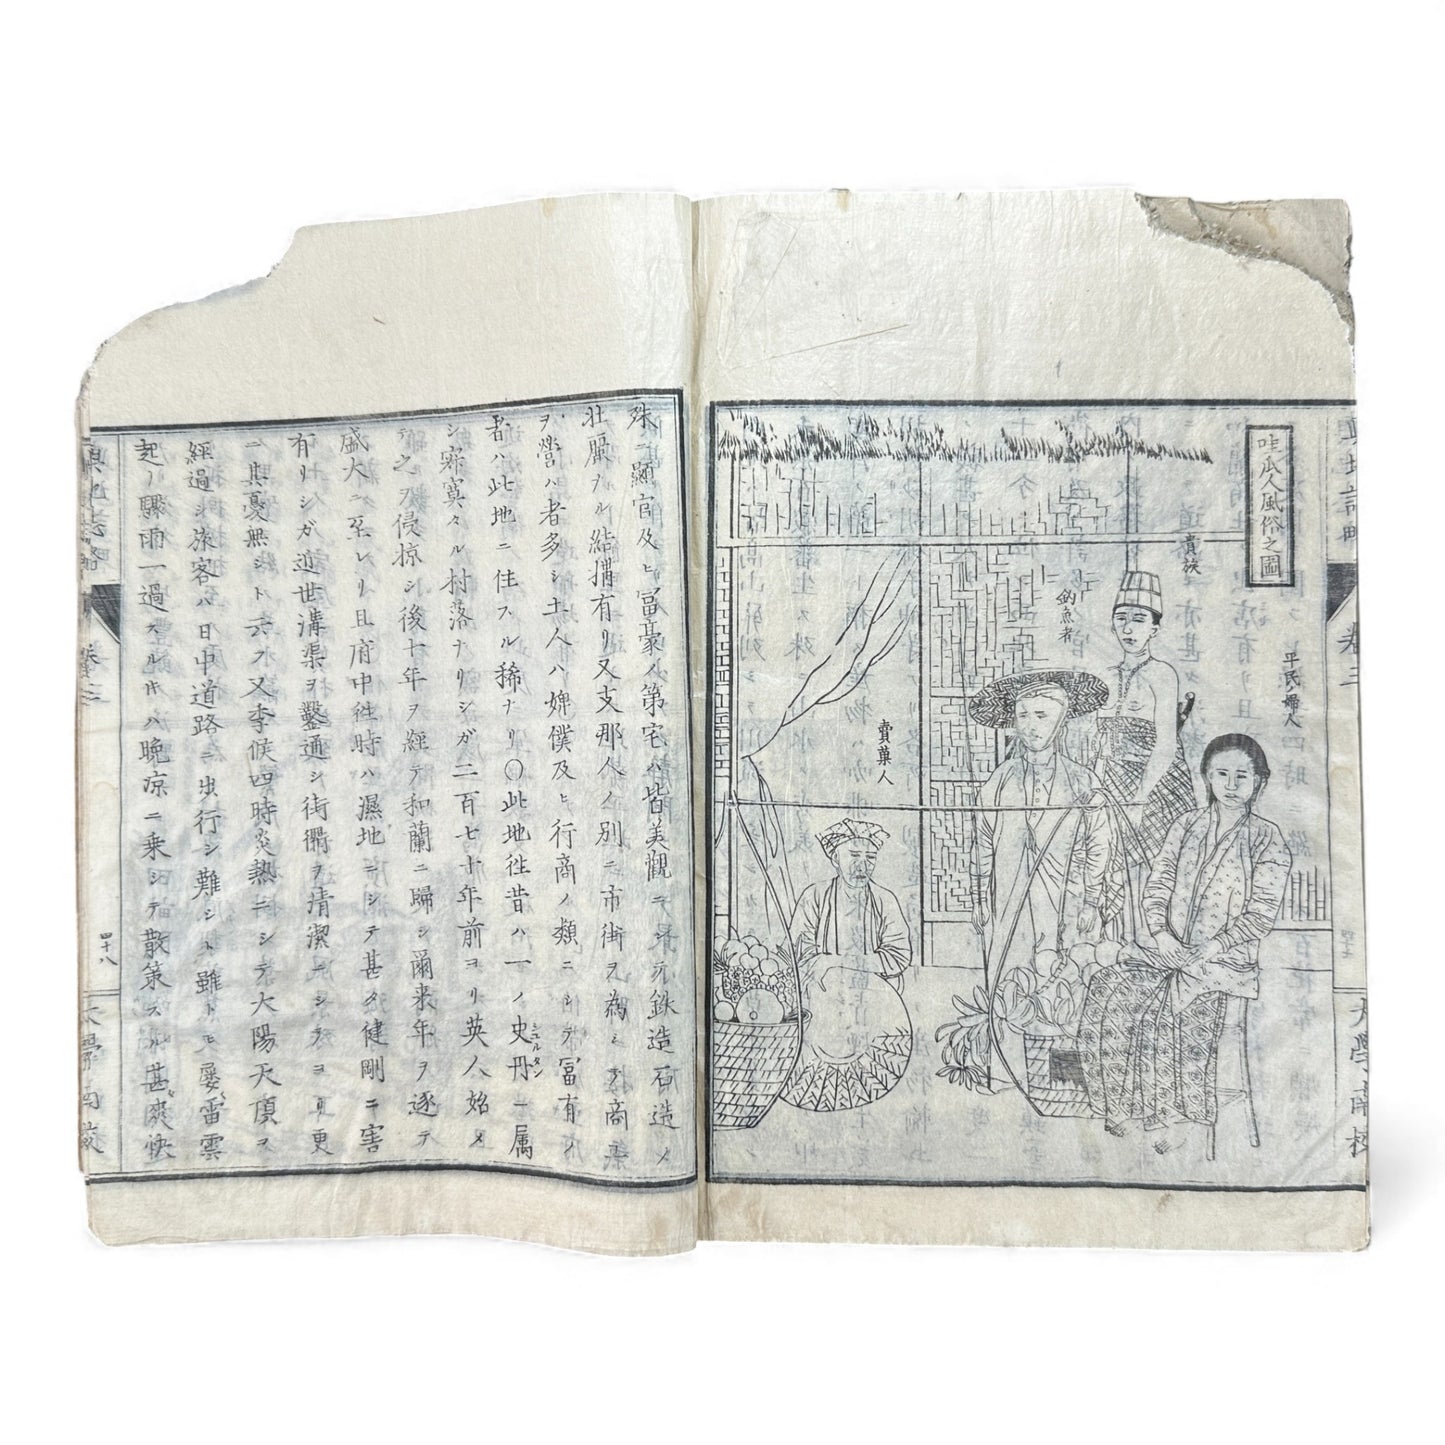 哇瓜人風俗之圖
平民婦人
貴族
釣魚者
賣菓人
輿地誌畧
卷三
四十七
大學南校
殊ニ顯官及ヒ冨豪ノ第宅ハ皆美觀ニシテ銕造石造ノ
壮嚴ナル結搆有リ又支那人ノ別ニ市街ヲ為シテ商
ヲ營ハ者多シ土人ハ婢僕及ヒ行商ノ類ニシテ冨有ノ
者ハ此地ニ住スル稀ナリ〇此地徃昔ハ一ノ史丹ニ属
シュルタン
シ寂寞タル村落ナリシガ二百七十年前ヨリ英人始メ
テ之ヲ侵掠シ後七年ヲ経テ和蘭ニ歸シ爾来年ヲ逐テ
盛大ニ至レリ且府中徃時ハ濕地ニシテ甚タ健剛ニ害
有リシガ近世溝渠ヲ鑿通シ街衢ヲ清潔ニシテヨリ更
ニ其憂無シト云又季候四時炎熱ニシテ大陽天頂ヲ
經過シ旅客ハ日中道路ニ出行シ難シト雖トモ屡雷雲
起リ驟雨一過スル𪜈ハ晩凉ニ乗シテ散策スル甚爽快
輿地誌略
卷三
四十八
大學南校